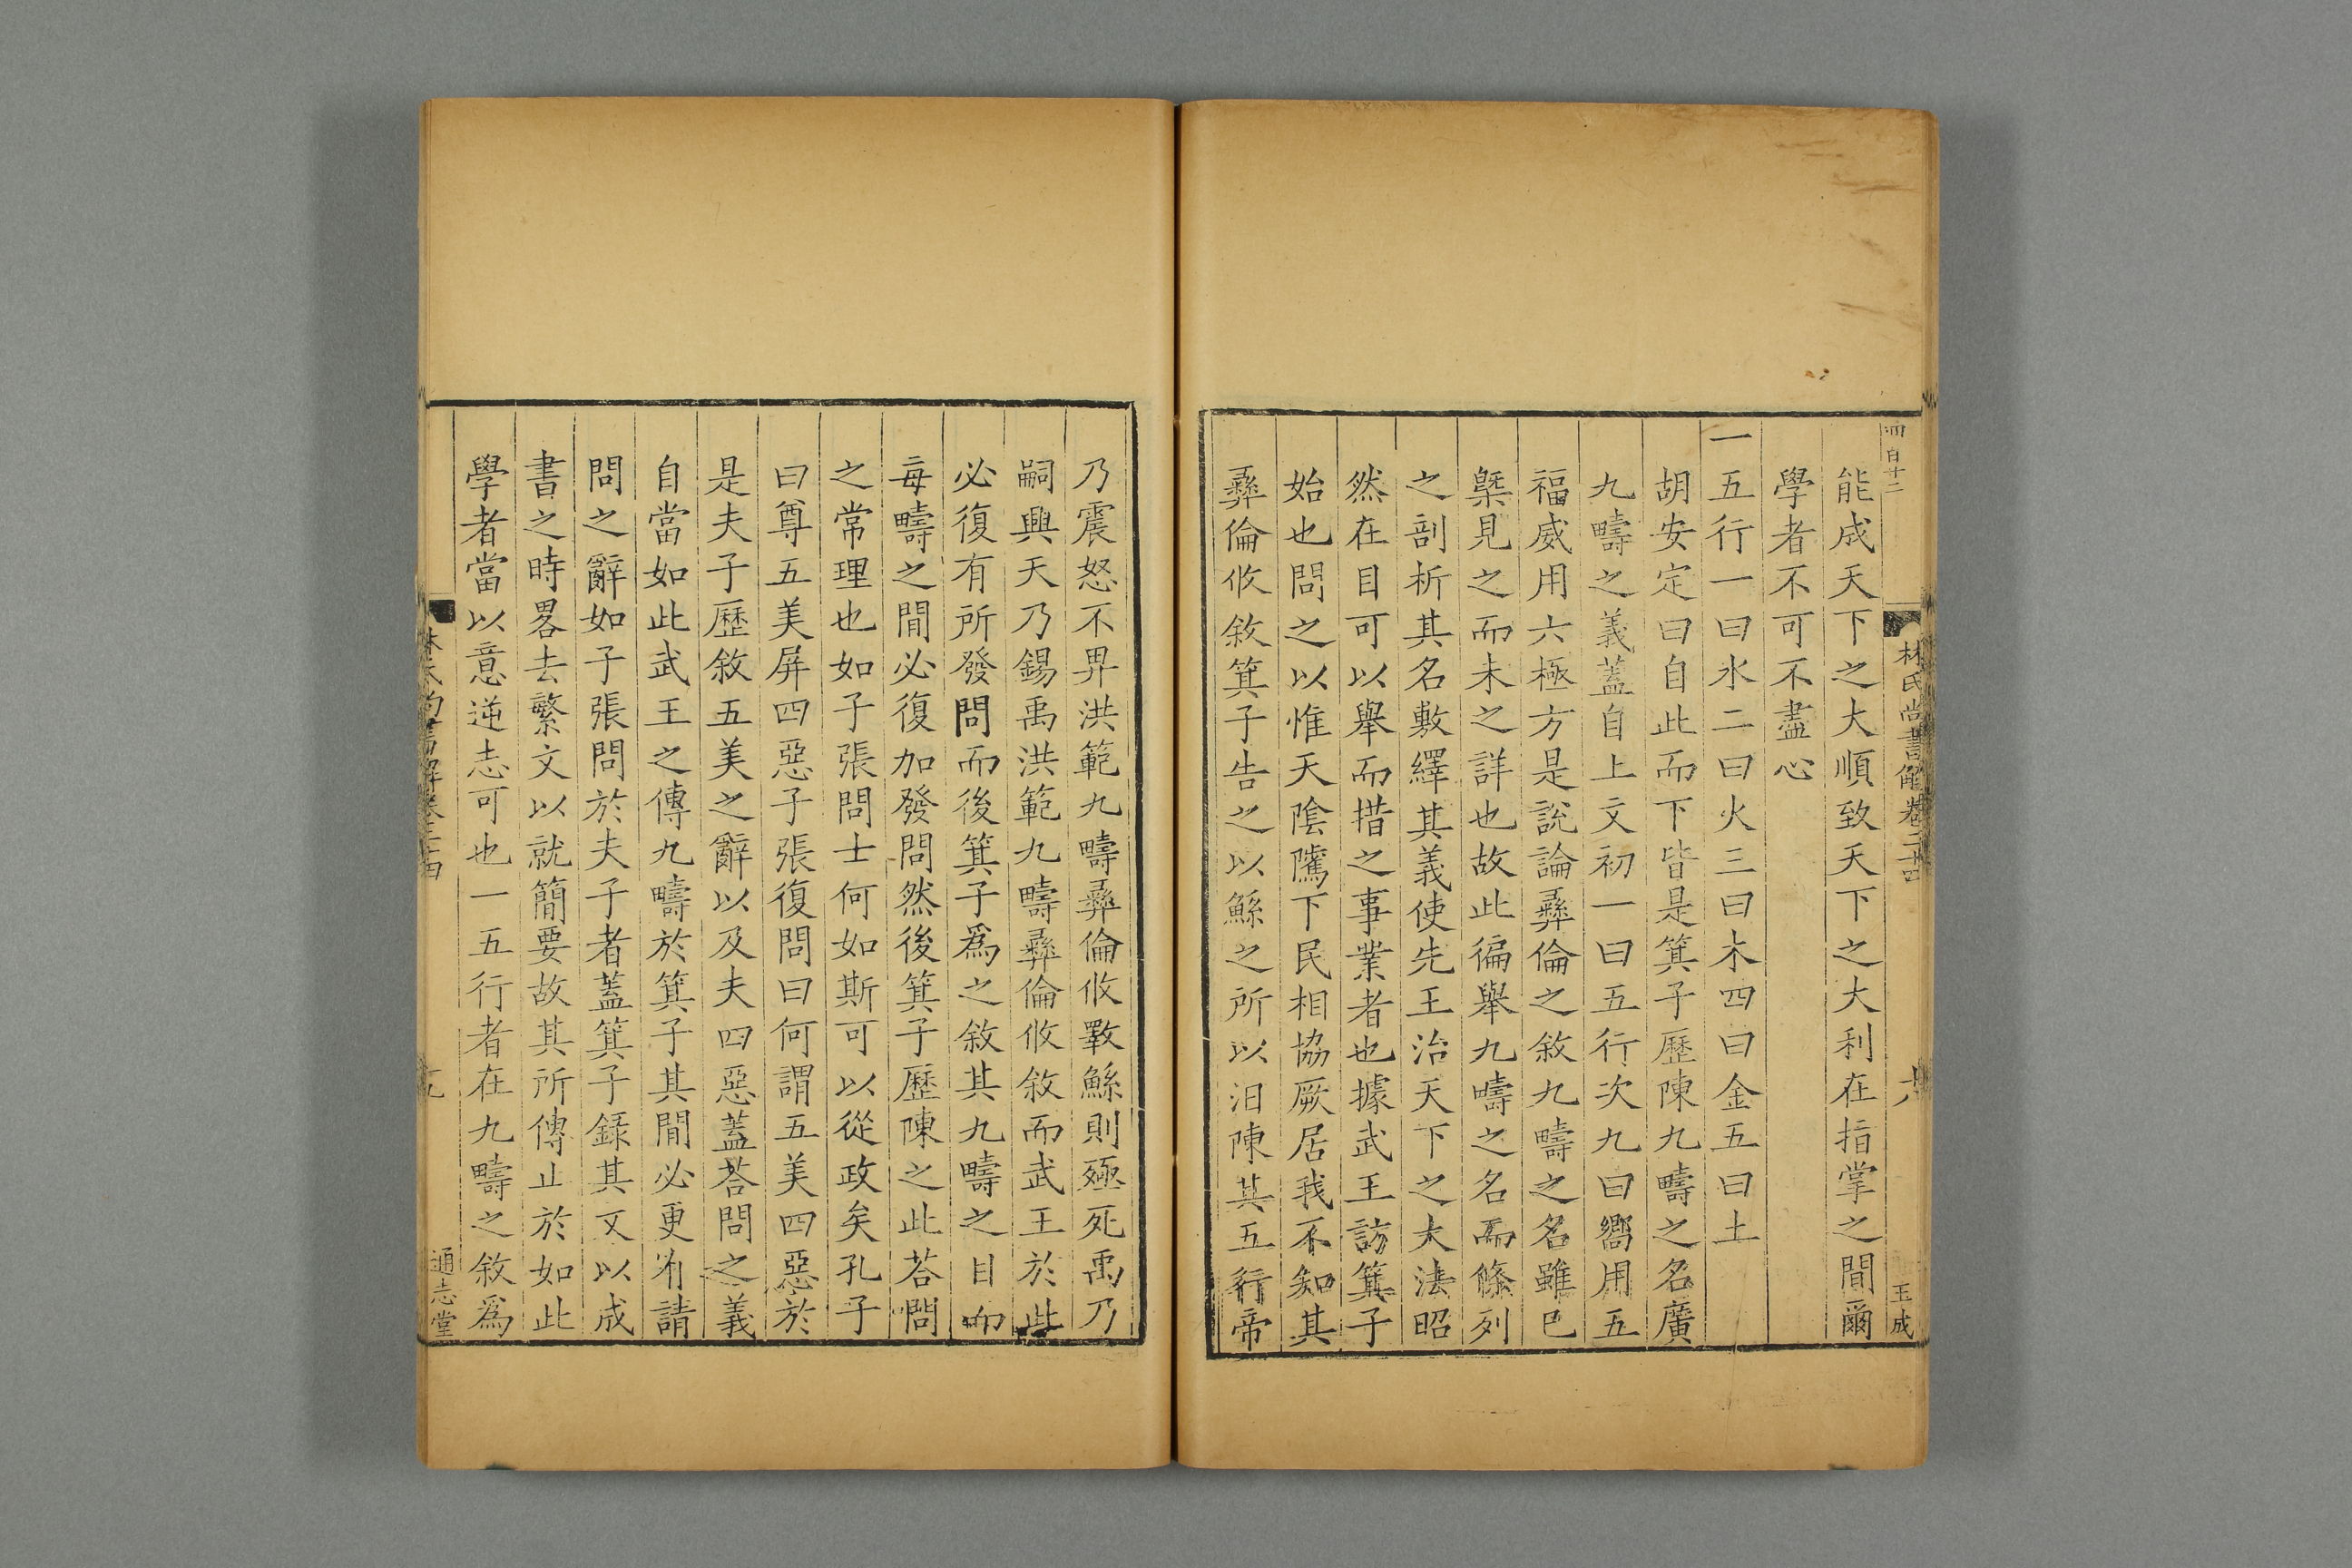 四百廿二
林氏尚書解卷二十四
六
玉成
能成天下之大順致天下之大利在指掌之間爾
學者不可不盡心
一五行一曰水二曰火三曰木四曰金五曰土
胡安定曰自此而下皆是箕子歷陳九疇之名廣
九疇之義蓋自上文初一曰五行次九曰嚮用五
福威用六極方是說論彝倫之敘九疇之名雖已
槩見之而未之詳也故此徧舉九疇之名而條列
之剖析其名敷繹其義使先王治天下之大法昭
然在目可以舉而措之事業者也據武王訪箕子
始也問之以惟天陰騭下民相協厥居我不知其
彝倫攸敘箕子告之以鯀之所以汨陳其五行帝
乃震怒不畀洪範九疇彝倫攸斁鯀則殛死禹乃
嗣興天乃錫禹洪範九疇彝倫攸敘而武王於此
必復有所發問而後箕子爲之敘其九疇之目而
每疇之間必復加發問然後箕子歷陳之此荅問
之常理也如子張問士何如斯可以從政矣孔子
曰尊五美屏四惡子張復問曰何謂五美四惡於
是夫子歷敘五美之辭以及夫四惡蓋荅問之義
自當如此武王之傳九疇於箕子其間必更有請
問之辭如子張問於夫子者蓋箕子錄其文以成
書之時畧去繁文以就簡要故其所傳止於如此
學者當以意逆志可也一五行者在九疇之敘爲
林氏尚書解卷二十四
九
通志堂